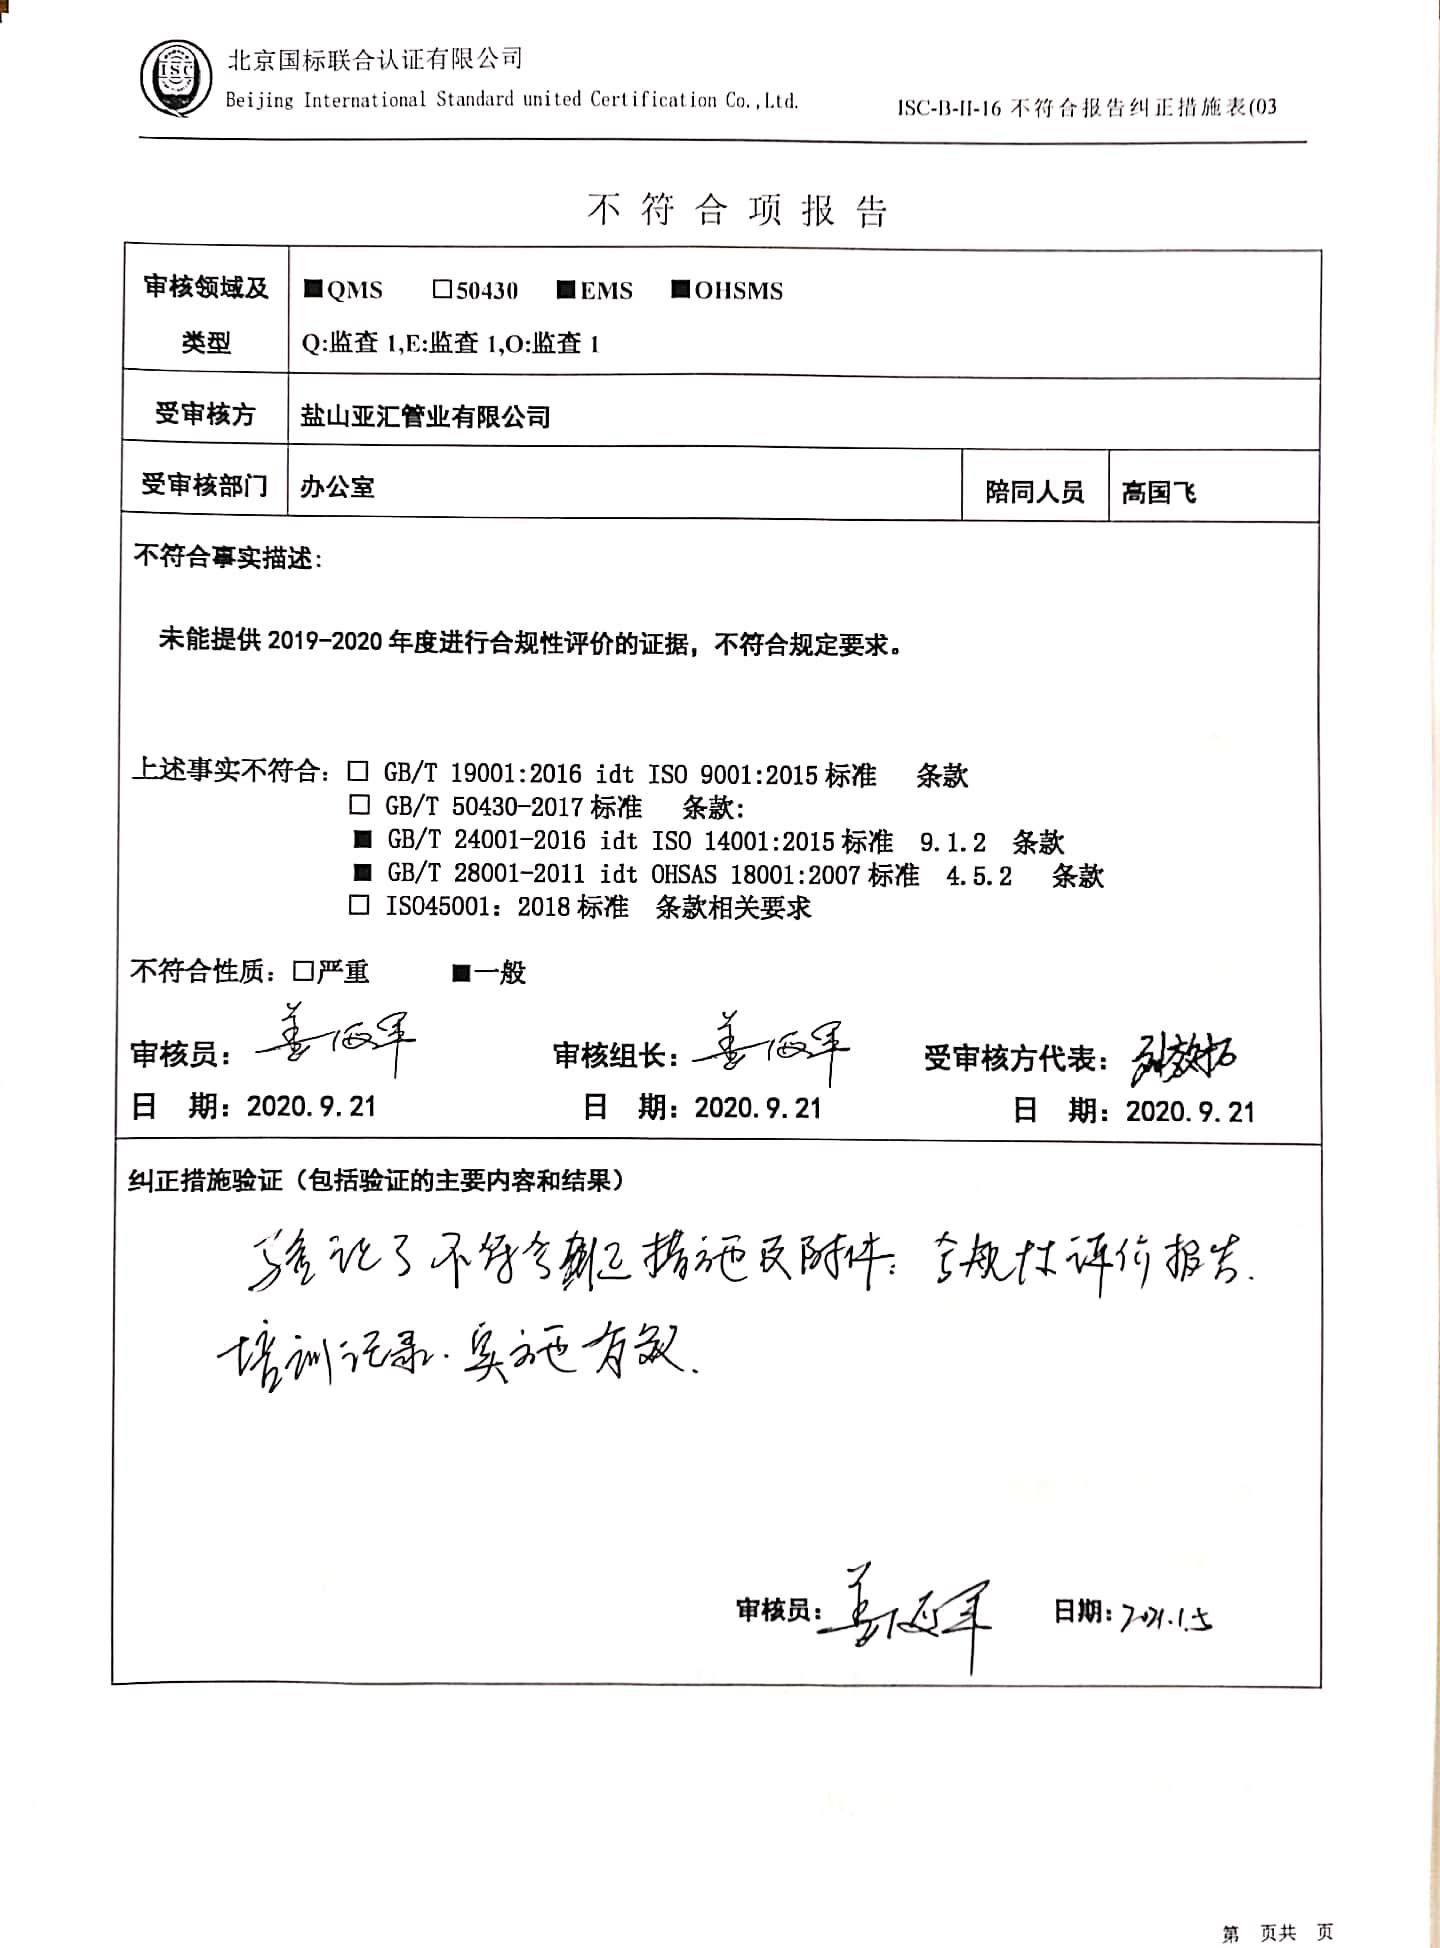 ISC
北京国标联合认证有限公司
Beijing International Standard united Certification Co.,Ltd.
ISC-B-II-16 不符合报告纠正措施表(03
不符合项报告
审核领域及类型
■QMS □50430 ■EMS ■OHSMS
Q:监查 1,E:监查 1,O:监查 1
受审核方 盐山亚汇管业有限公司
受审核部门 办公室 陪同人员 高国飞
不符合事实描述:
未能提供 2019-2020 年度进行合规性评价的证据，不符合规定要求。
上述事实不符合: □ GB/T 19001:2016 idt ISO 9001:2015 标准 条款
□ GB/T 50430-2017 标准 条款:
■ GB/T 24001-2016 idt ISO 14001:2015 标准 9.1.2 条款
■ GB/T 28001-2011 idt OHSAS 18001:2007 标准 4.5.2 条款
□ ISO45001: 2018 标准 条款相关要求
不符合性质: □严重 ■一般
审核员: 姜海军 审核组长: 姜海军 受审核方代表:
日 期: 2020.9.21 日 期: 2020.9.21 日 期: 2020.9.21
纠正措施验证（包括验证的主要内容和结果）
验证了不符合纠正措施及附件: 合规性评价报告.
培训记录.实施有效.
审核员: 姜海军 日期: 2021.1.5
第 页共 页